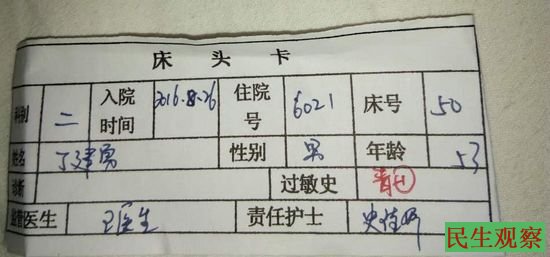 床头卡
科别 二 入院时间 2016.8.26 住院号 6021 床号 50
姓名 丁建勇 性别 男 年龄 53
诊断 过敏史
主管医生 王医生 责任护士 史
民生观察